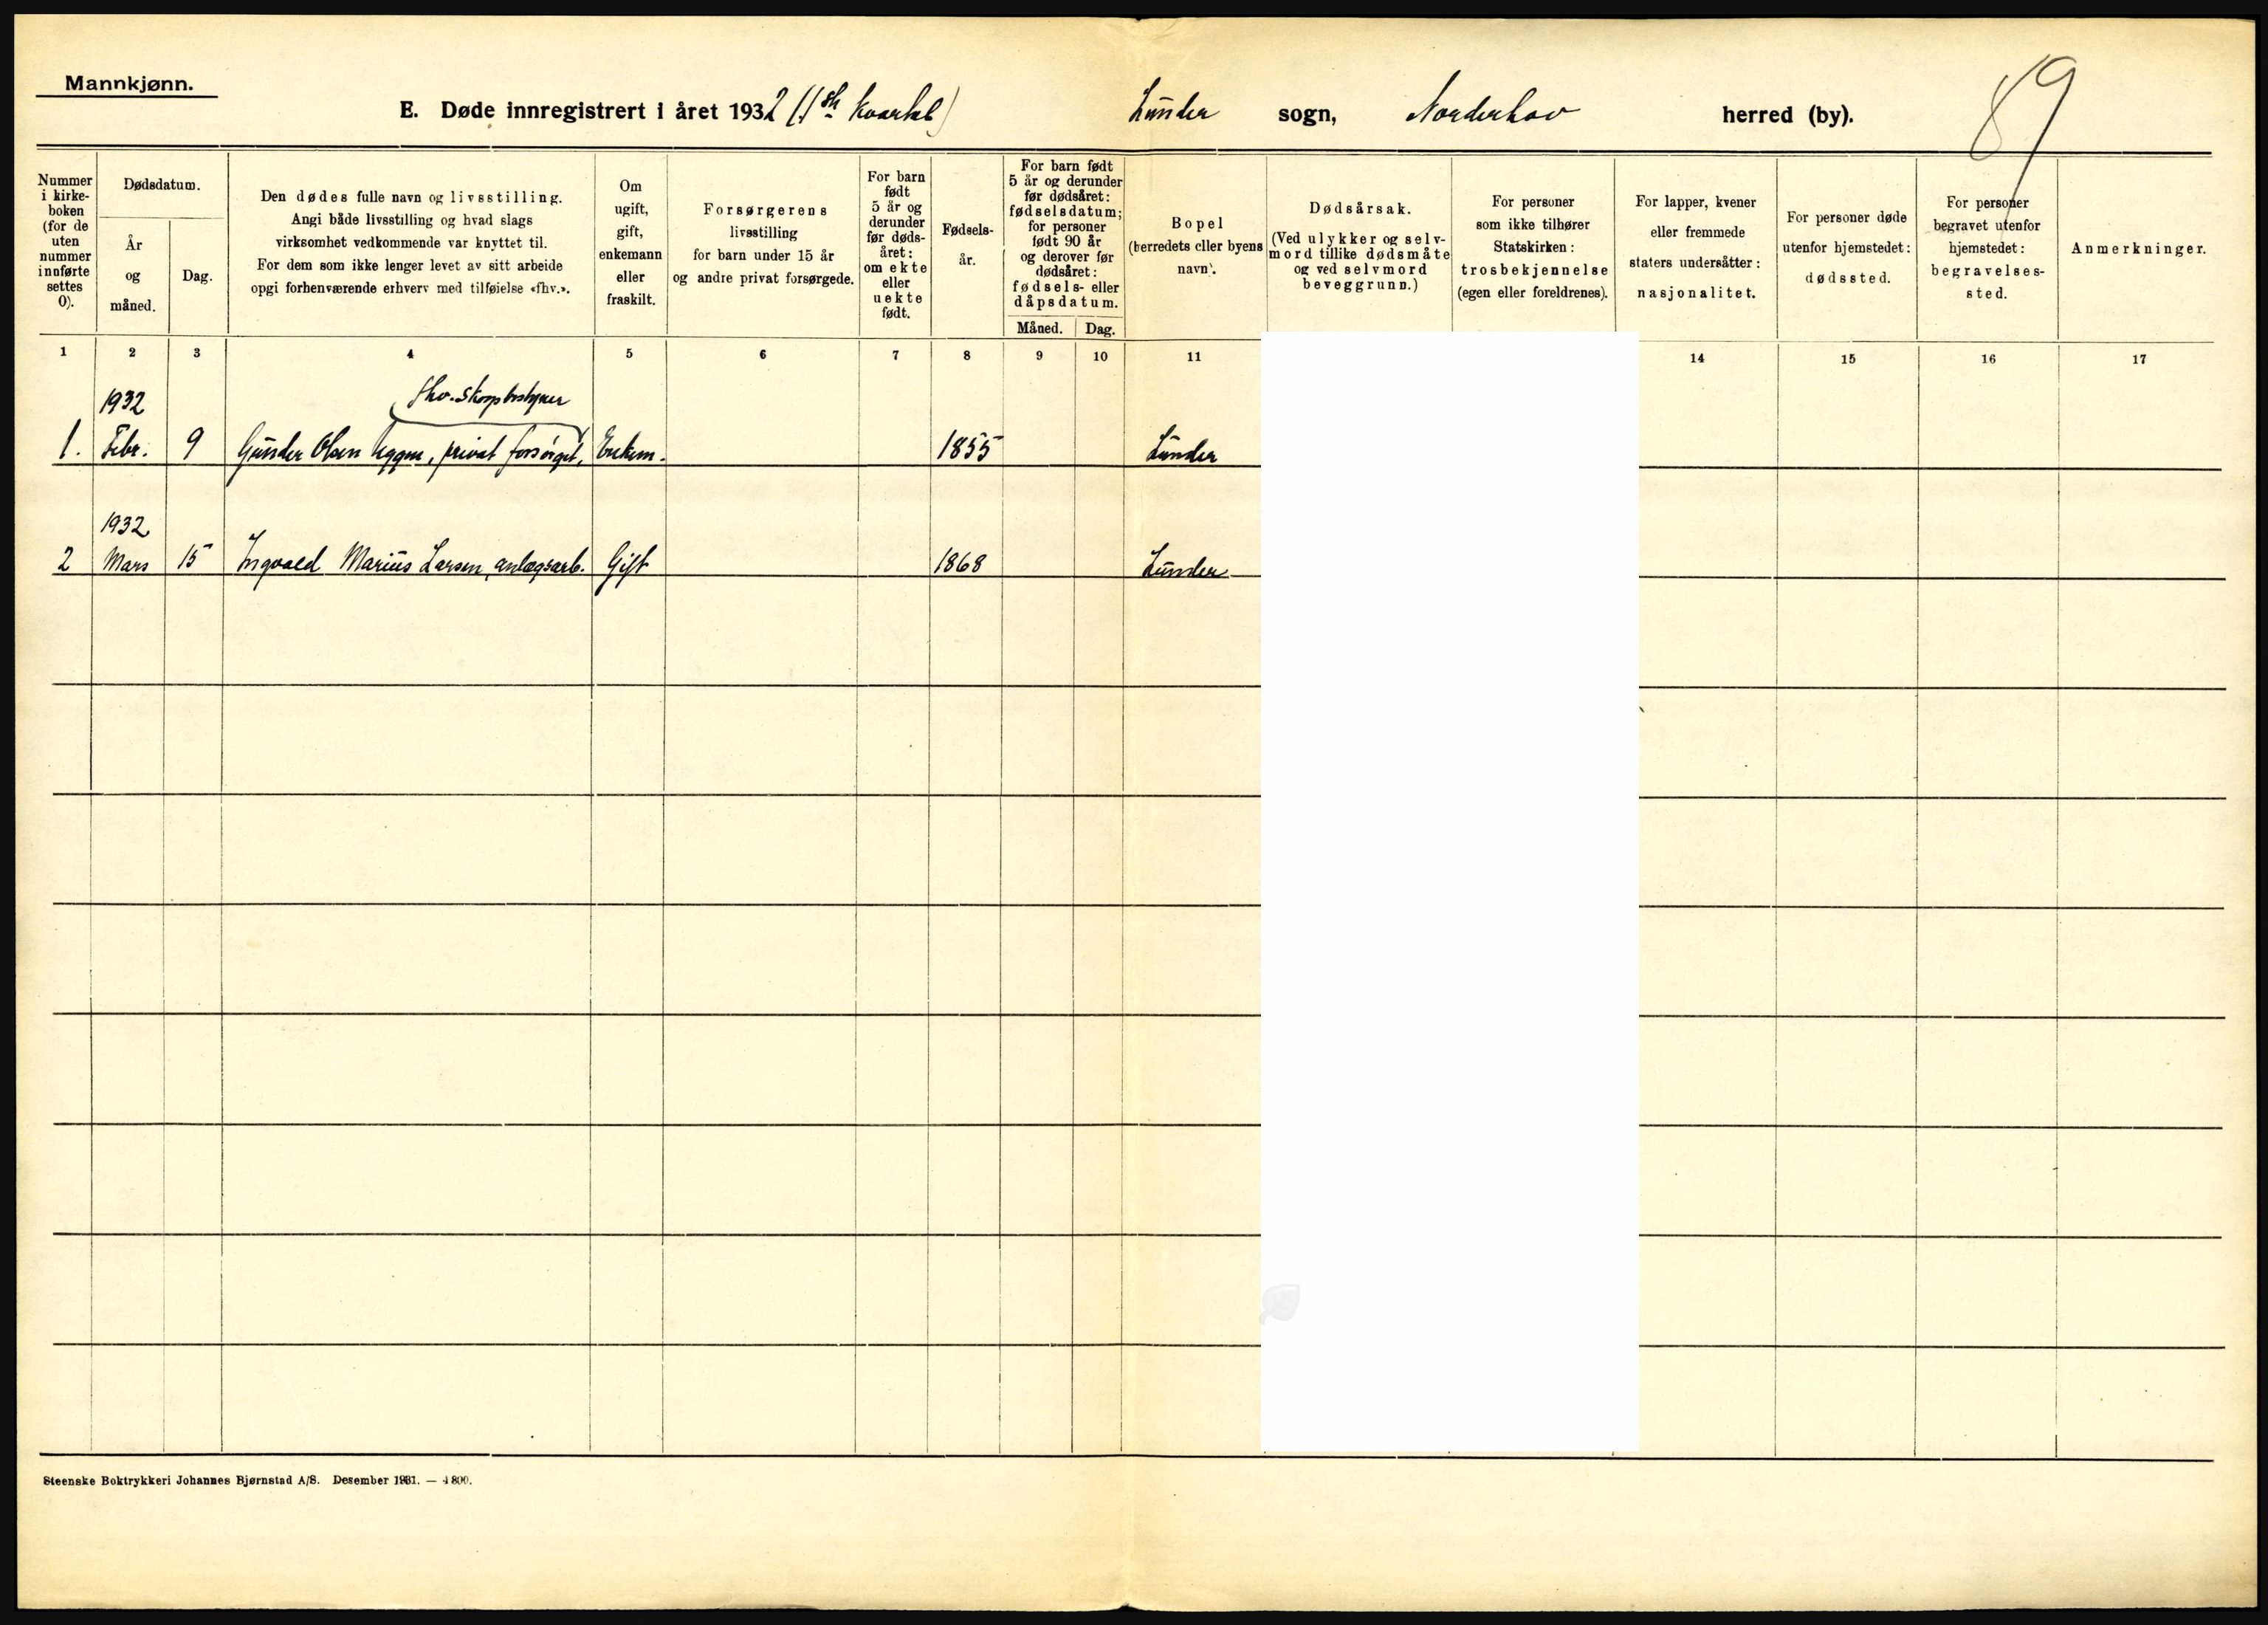 Mannkjønn.
E. Døde innregistrert i året 1932 (1ste kvartal) Lunder sogn, Norderhov herred (by).
89
Nummer i kirke-boken (for de uten nummer innførte settes 0).
Dødsdatum.
År og måned.
Dag.
Den dødes fulle navn og livsstilling.
Angi både livsstilling og hvad slags
virksomhet vedkommende var knyttet til.
For dem som ikke lenger levet av sitt arbeide
opgi forhenværende erhverv med tilføielse «fhv.».
Om ugift, gift, enkemann eller fraskilt.
Forsørgerens
livsstilling
for barn under 15 år
og andre privat forsørgede.
For barn født 5 år og derunder før døds-året: om ekte eller uekte født.
Fødsels-år.
For barn født 5 år og derunder før dødsåret: fødselsdatum; for personer født 90 år og derover før dødsåret: fødsels- eller dåpsdatum.
Måned. Dag.
Bopel
(herredets eller byens
navn).
Dødsårsak.
(Ved ulykker og selv-
mord tillike dødsmåte
og ved selvmord
beveggrunn.)
For personer
som ikke tilhører
Statskirken:
trosbekjennelse
(egen eller foreldrenes).
For lapper, kvener
eller fremmede
staters undersåtter:
nasjonalitet.
For personer døde
utenfor hjemstedet:
dødssted.
For personer
begravet utenfor
hjemstedet:
begravelses-
sted.
Anmerkninger.
1 2 3 4 5 6 7 8 9 10 11 14 15 16 17
1932 fhv. skogbestyrer
1. Febr. 9 Gunder Olsen, privat forsørget, Enkem. 1855 Lunder
1932
2 Mars 15 Ingvald Marius Larsen, anlægsarb. Gift 1868 Lunder
Steenske Boktrykkeri Johannes Bjørnstad A/S. Desember 1931. — 4 800.